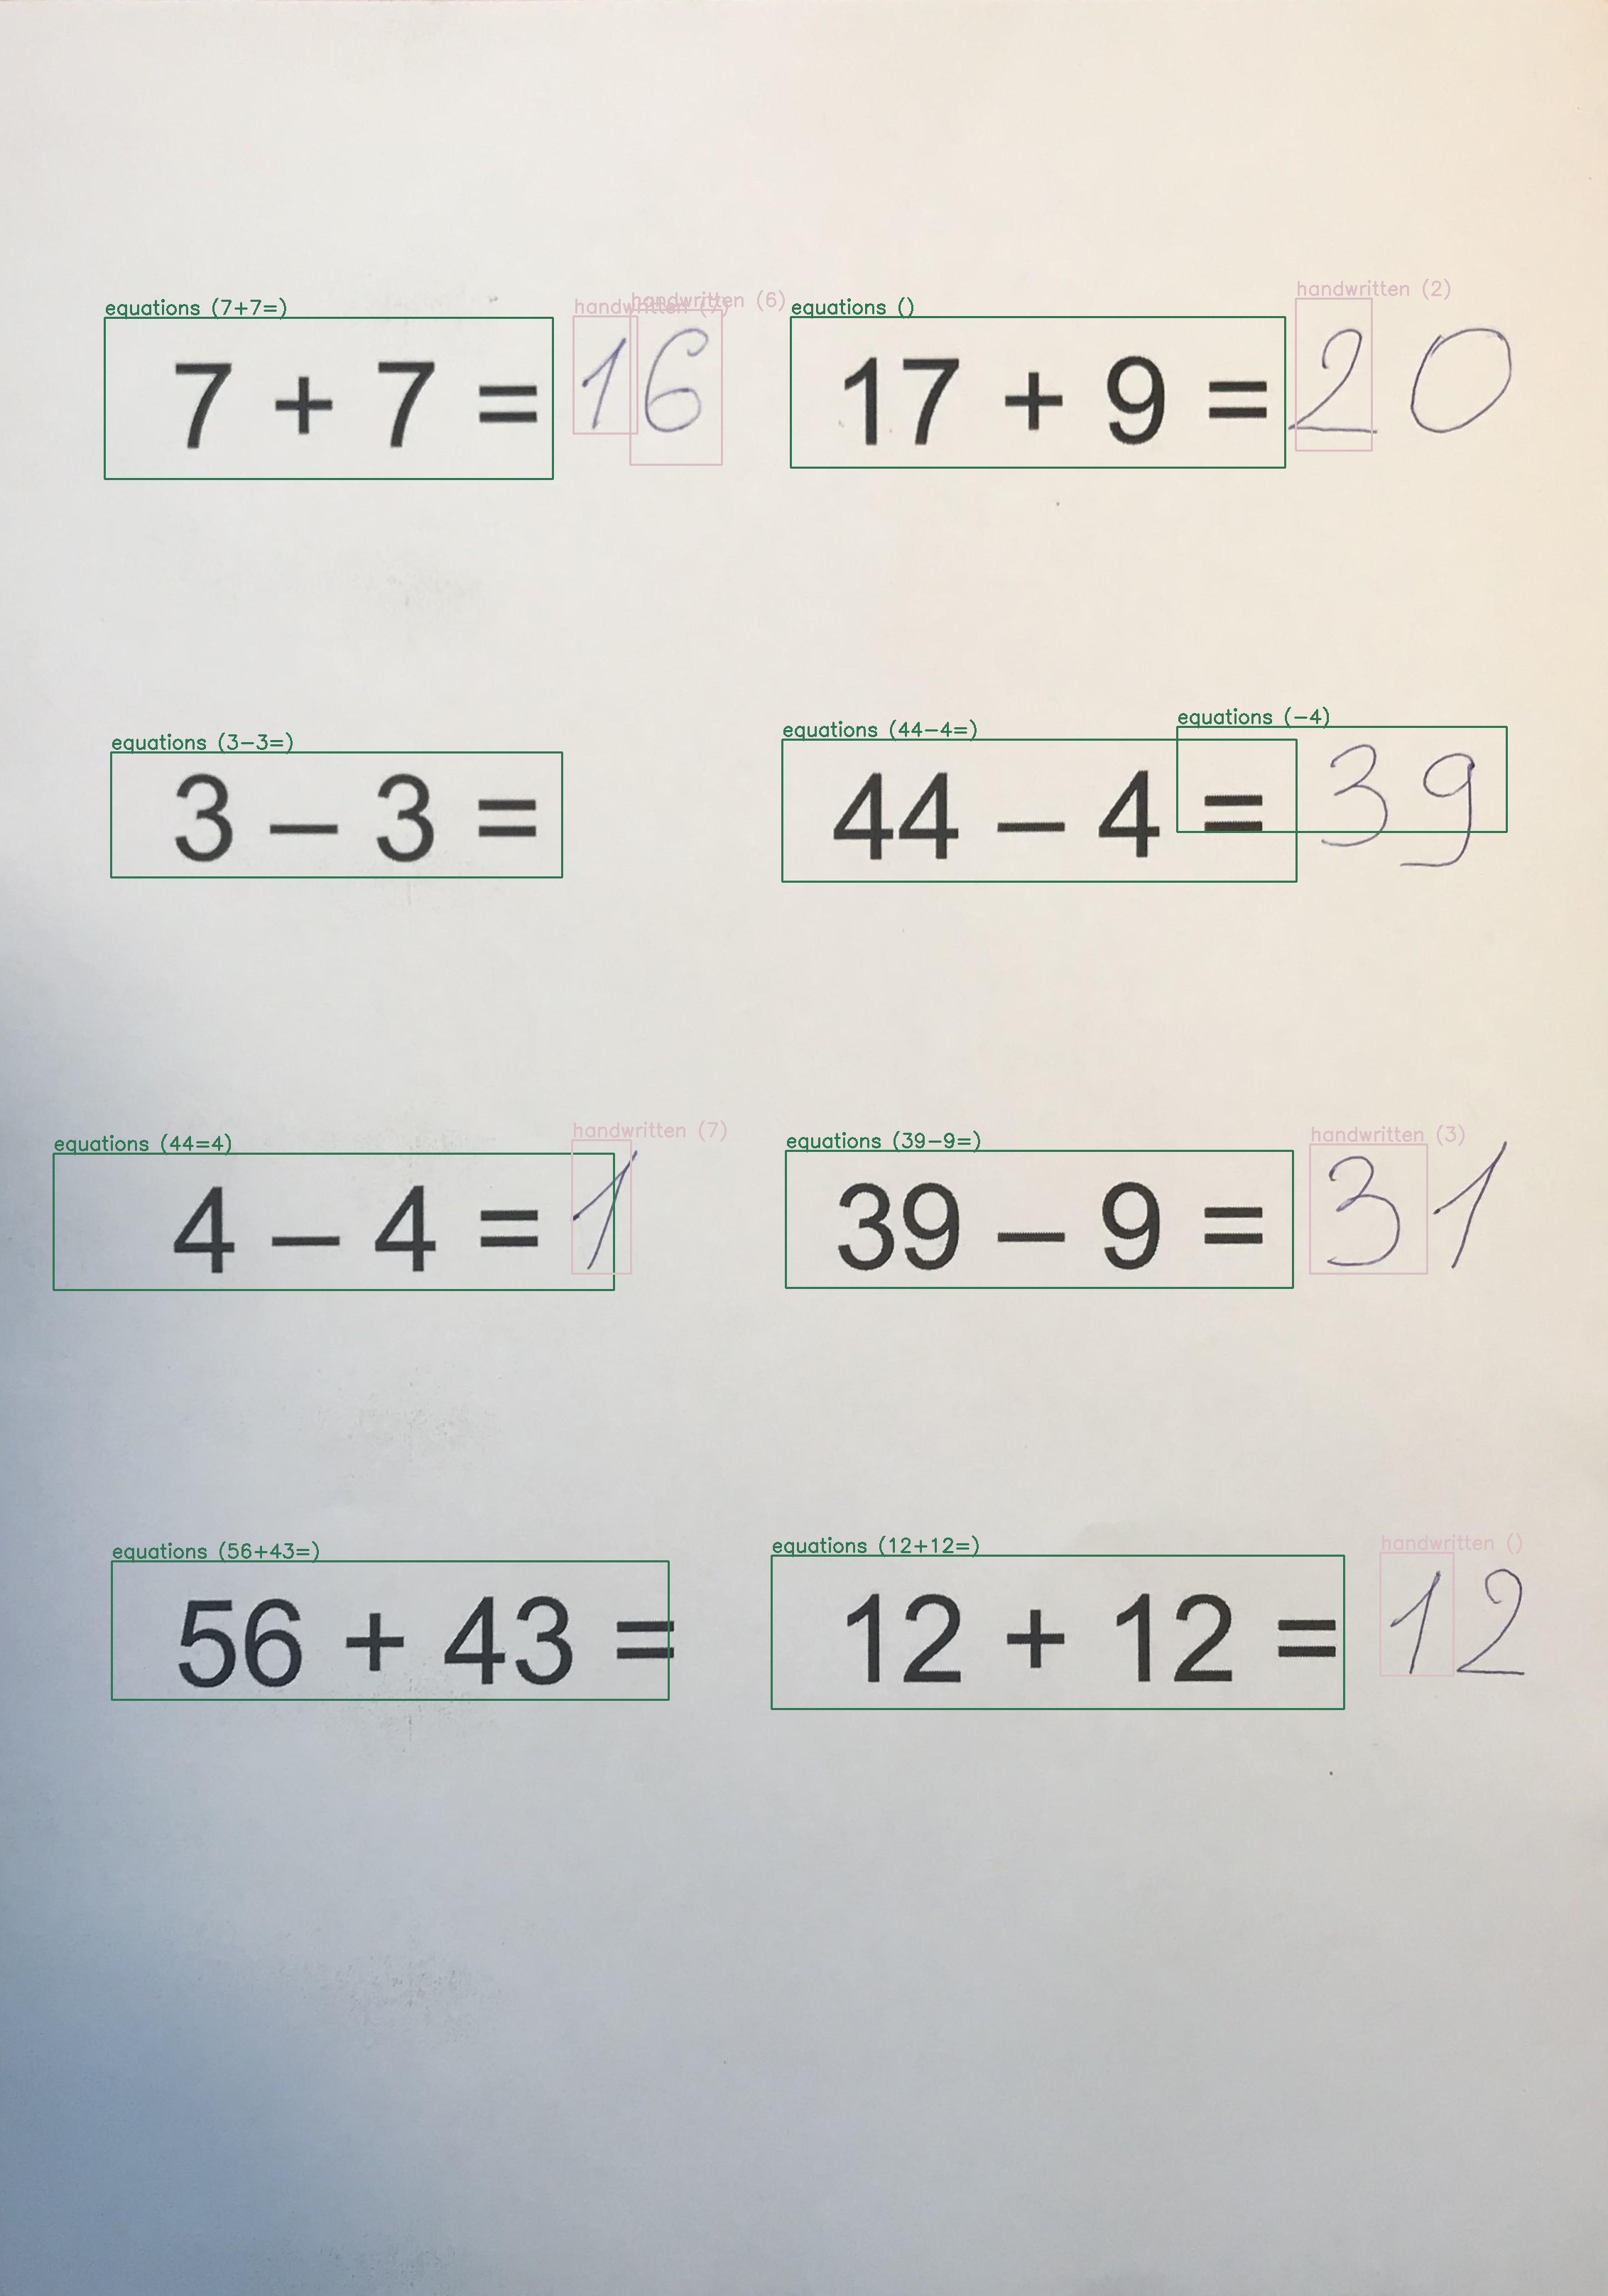 equations (7+7=) handwritten (7) handwritten (6) equations () handwritten (2)
7 + 7 = 16 17 + 9 = 20
equations (3-3=) equations (44-4=) equations (-4)
3 – 3 = 44 – 4 = 39
equations (44=4) handwritten (7) equations (39-9=) handwritten (3)
4 – 4 = 1 39 – 9 = 31
equations (56+43=) equations (12+12=) handwritten ()
56 + 43 = 12 + 12 = 12